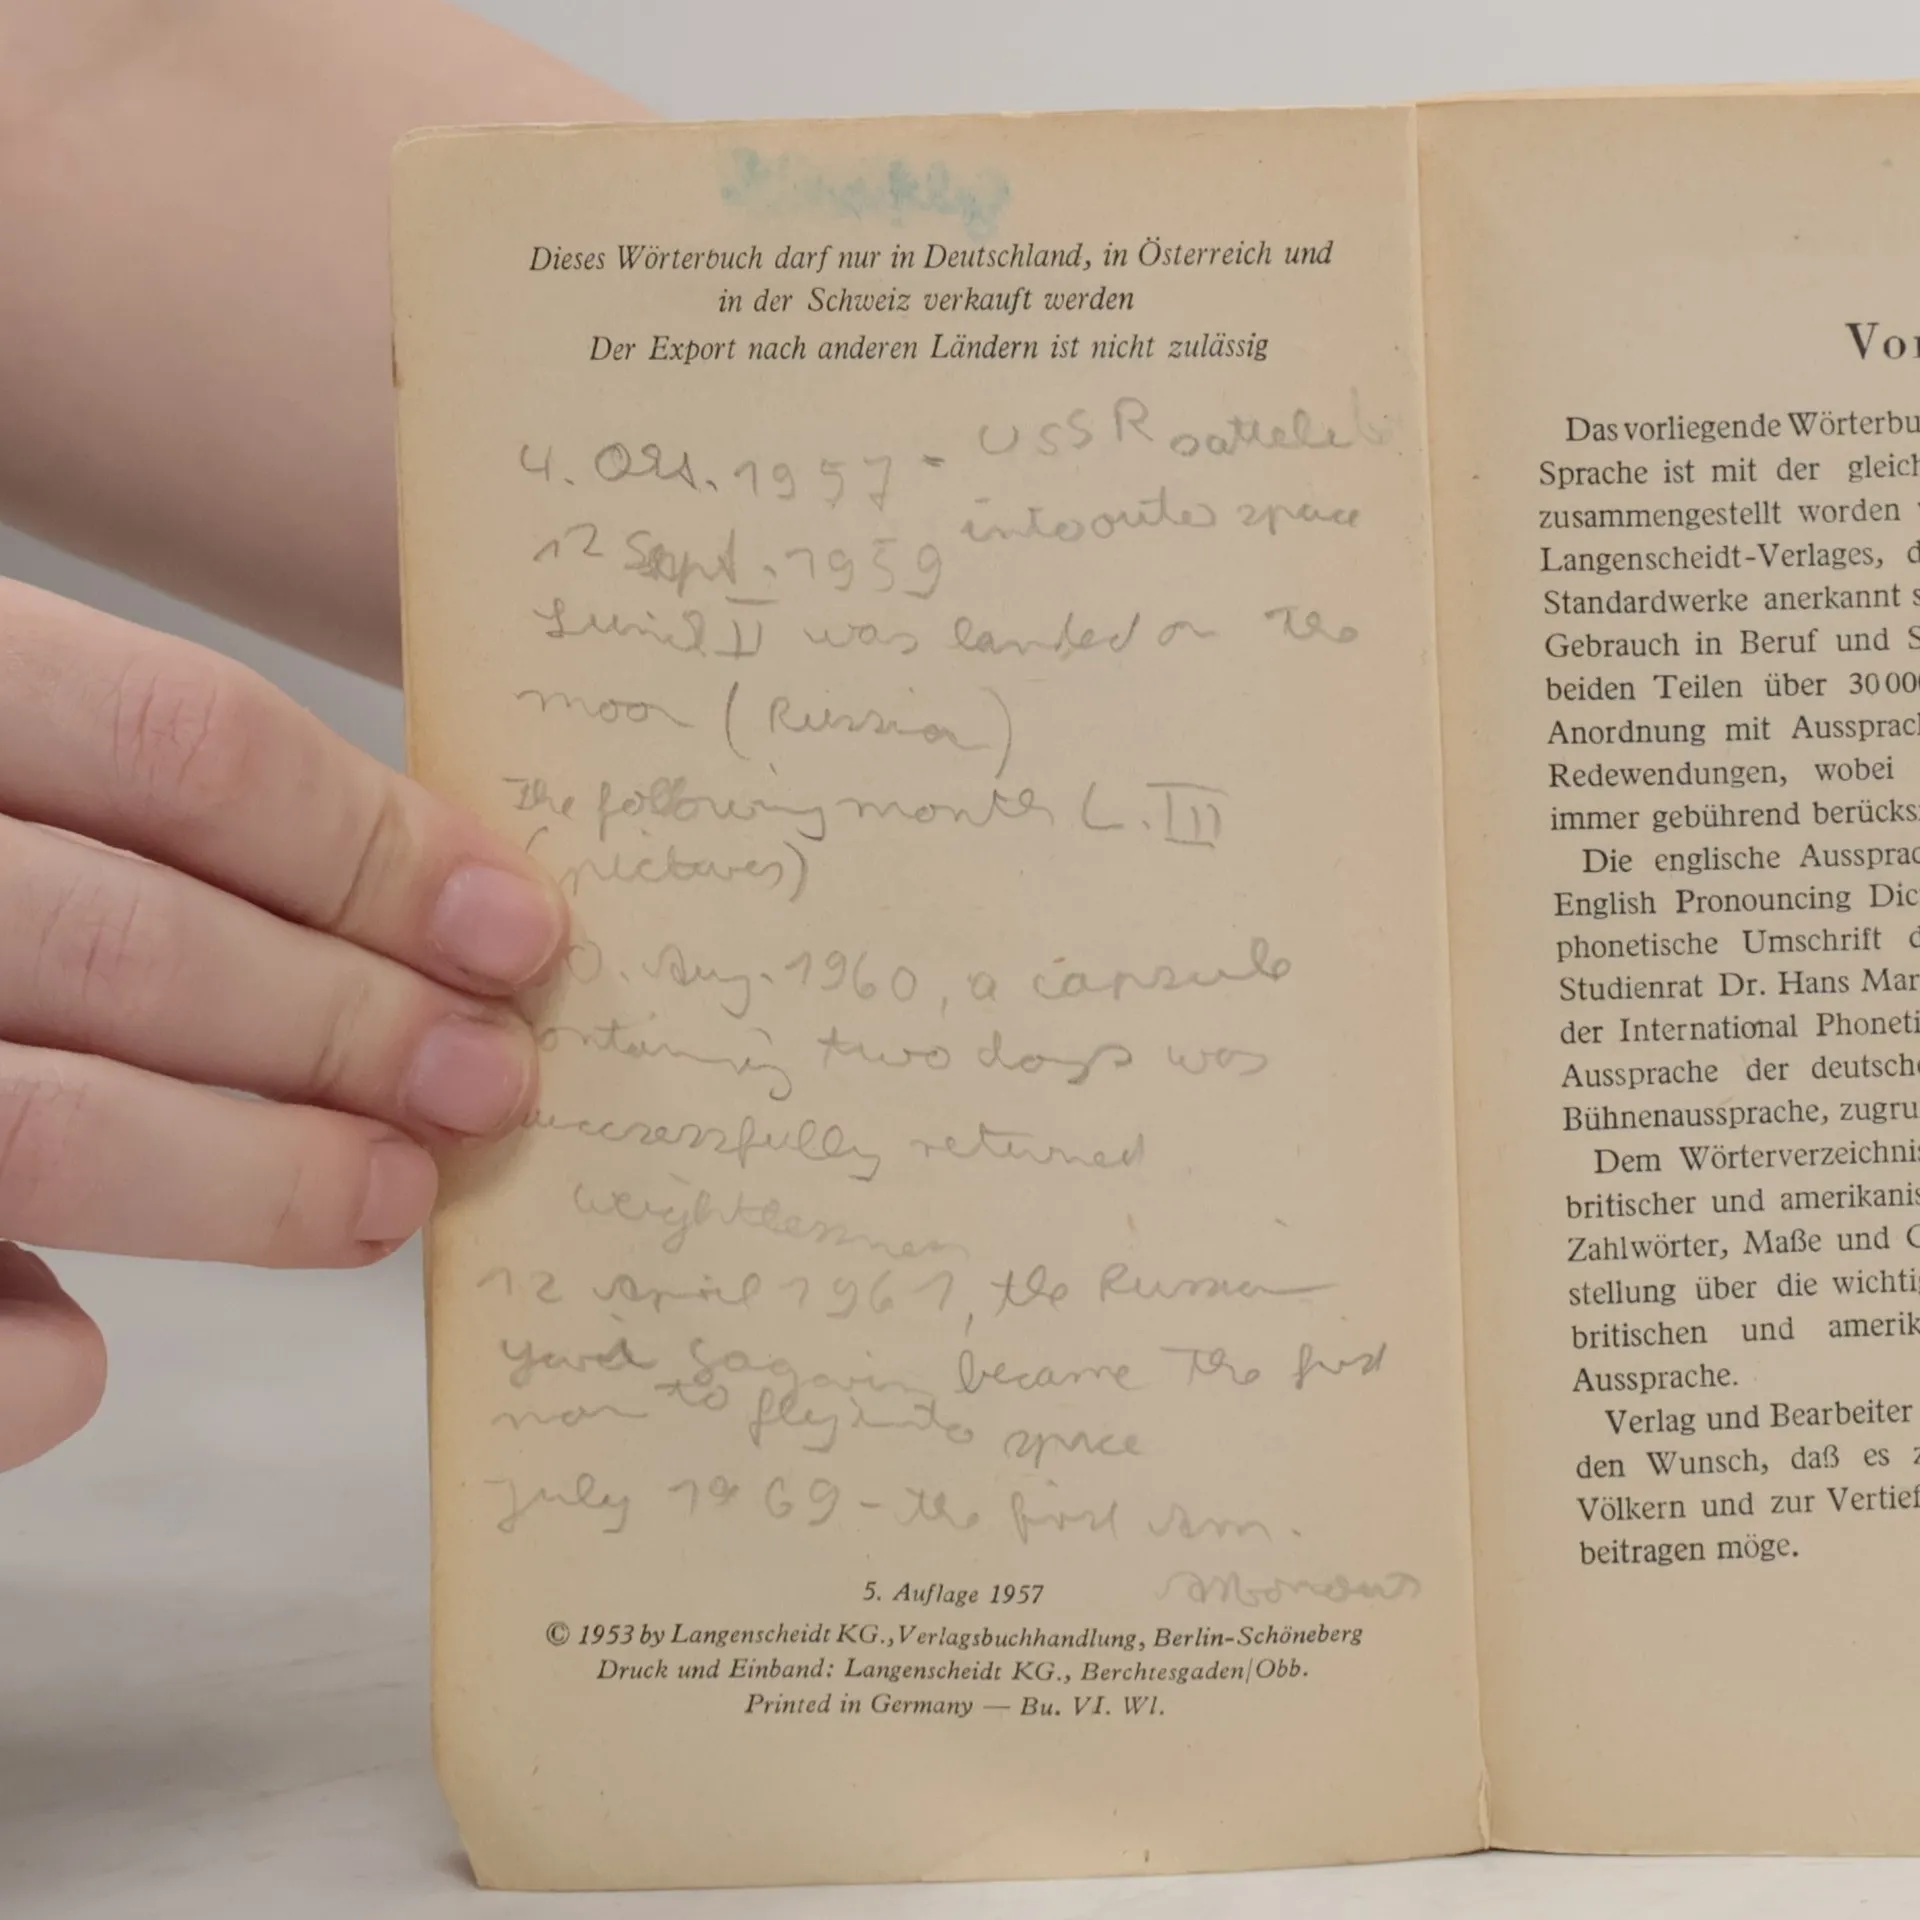 Dieses Wörterbuch darf nur in Deutschland, in Österreich und
in der Schweiz verkauft werden
Der Export nach anderen Ländern ist nicht zulässig
4. Okt. 1957 - USSR
into outer space
12 Sept. 1959
Lunik II was landed on the
moon (Russia)
The following month L. III
(pictures)
0. Aug. 1960, a capsule
ontaining two dogs was
uccessfully returned
weightlessness
12 April 1961, the Russian
Gagarin became the first
man to fly into space
July 1969 - the first Am.
5. Auflage 1957
© 1953 by Langenscheidt KG., Verlagsbuchhandlung, Berlin-Schöneberg
Druck und Einband: Langenscheidt KG., Berchtesgaden/Obb.
Printed in Germany — Bu. VI. Wl.
Vor
Das vorliegende Wörterbu
Sprache ist mit der gleich
zusammengestellt worden
Langenscheidt-Verlages, d
Standardwerke anerkannt s
Gebrauch in Beruf und S
beiden Teilen über 30 000
Anordnung mit Aussprach
Redewendungen, wobei
immer gebührend berücks
Die englische Ausspra
English Pronouncing Dic
phonetische Umschrift d
Studienrat Dr. Hans Mar
der International Phoneti
Aussprache der deutsche
Bühnenaussprache, zugru
Dem Wörterverzeichnis
britischer und amerikanis
Zahlwörter, Maße und G
stellung über die wichtig
britischen und amerik
Aussprache.
Verlag und Bearbeiter
den Wunsch, daß es z
Völkern und zur Vertief
beitragen möge.